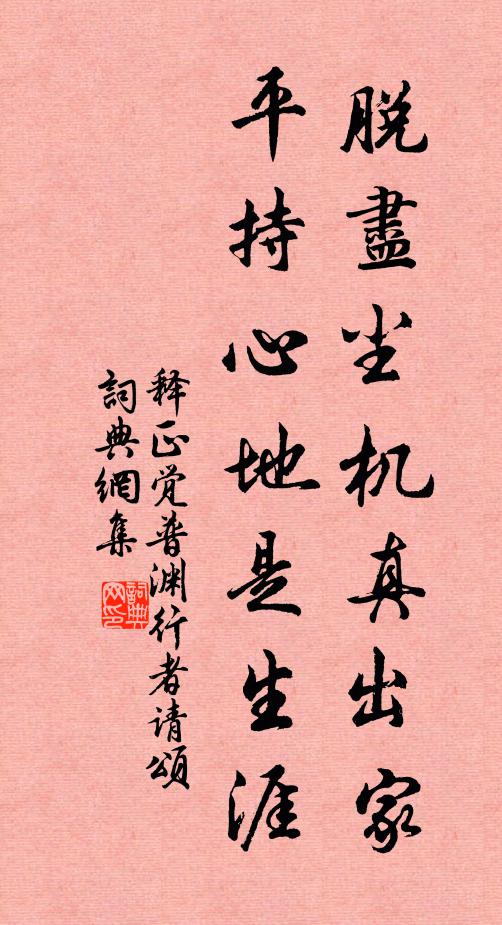 脫盡尘机真出家
平持心地是生涯
释正觉普渊行者请頌
詞典網集
詞典网印